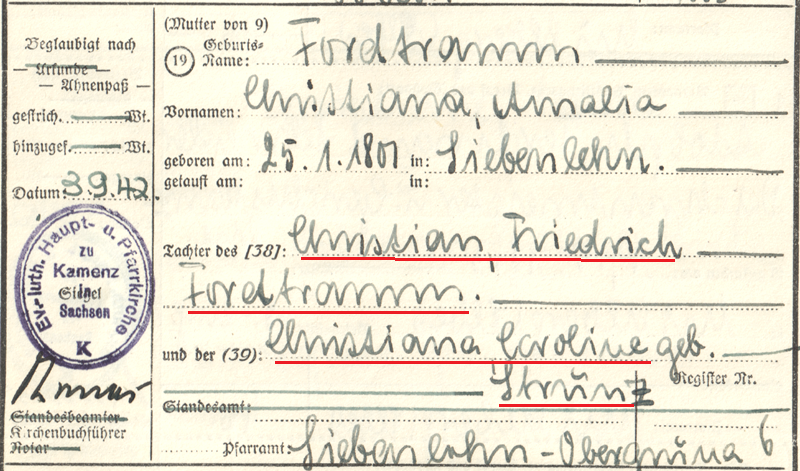 (Mutter von 9)
Beglaubigt nach
Urkunde
— Ahnenpaß —
gestrich. Wt.
hinzugef. Wt.
Datum: 3.9.42.
19 Geburts-Name: Fordtramm
Vornamen: Christiana, Amalia
geboren am: 25.1.1801 in: Siebenlehn.
getauft am: in:
Tochter des [38]: Christian, Friedrich
Fordtramm.
und der (39): Christiana, Caroline geb.
Strünz
Register Nr.
Standesamt:
Pfarramt: Siebenlehn-Obergruna 6
Ev.-luth. Haupt- u. Pfarrkirche
zu
Kamenz
in
Siegel
Sachsen
K
Standesbeamter
Kirchenbuchführer
Notar